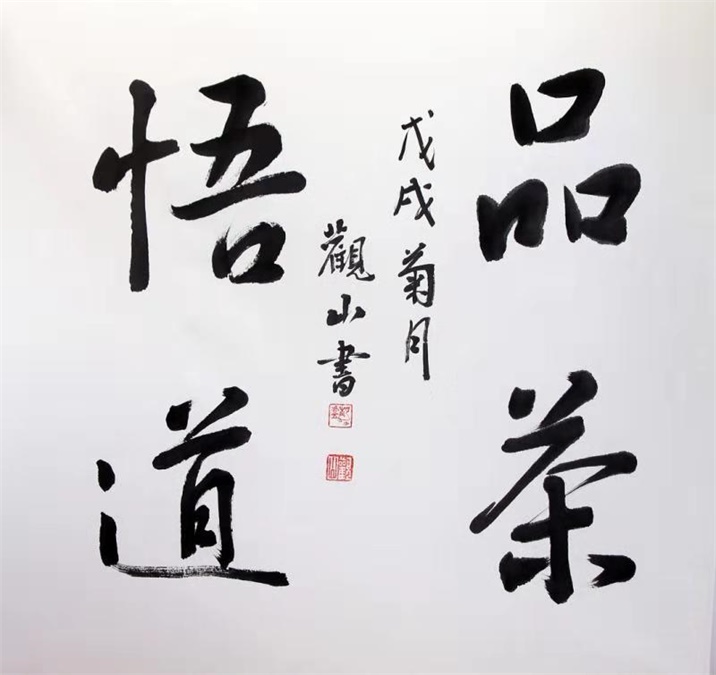 品茶
戊戌菊月
觀山書
悟道